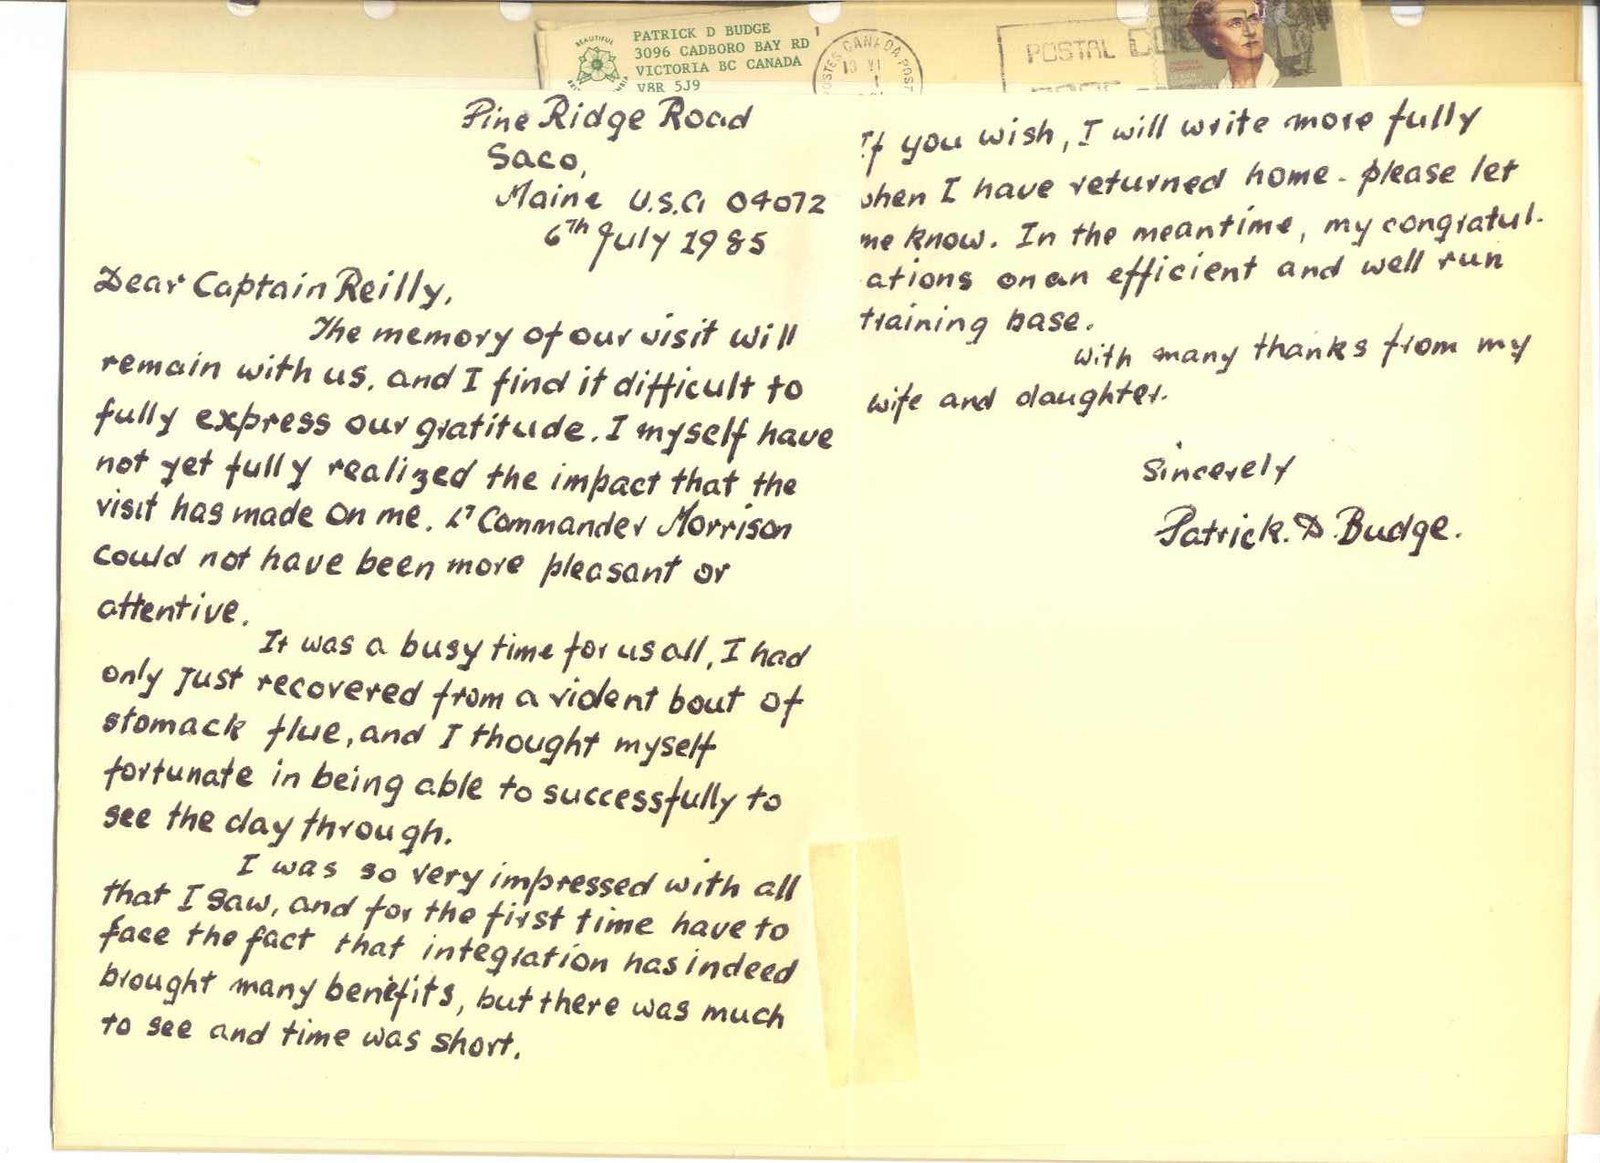 BEAUTIFUL
PATRICK D BUDGE
3096 CADBORO BAY RD
VICTORIA BC CANADA
V8R 5J9
POSTES CANADA POST
13 VI
POSTAL CO
Pine Ridge Road
Saco,
Maine U.S.A 04072
6th July 1985
Dear Captain Reilly,
The memory of our visit will
remain with us, and I find it difficult to
fully express our gratitude. I myself have
not yet fully realized the impact that the
visit has made on me. Lt Commander Morrison
could not have been more pleasant or
attentive.
It was a busy time for us all, I had
only just recovered from a violent bout of
stomack flue, and I thought myself
fortunate in being able to successfully to
see the day through.
I was so very impressed with all
that I saw, and for the first time have to
face the fact that integration has indeed
brought many benefits, but there was much
to see and time was short.
If you wish, I will write more fully
when I have returned home - please let
me know. In the meantime, my congratul-
ations on an efficient and well run
training base.
With many thanks from my
wife and daughter.
Sincerely
Patrick. D. Budge.